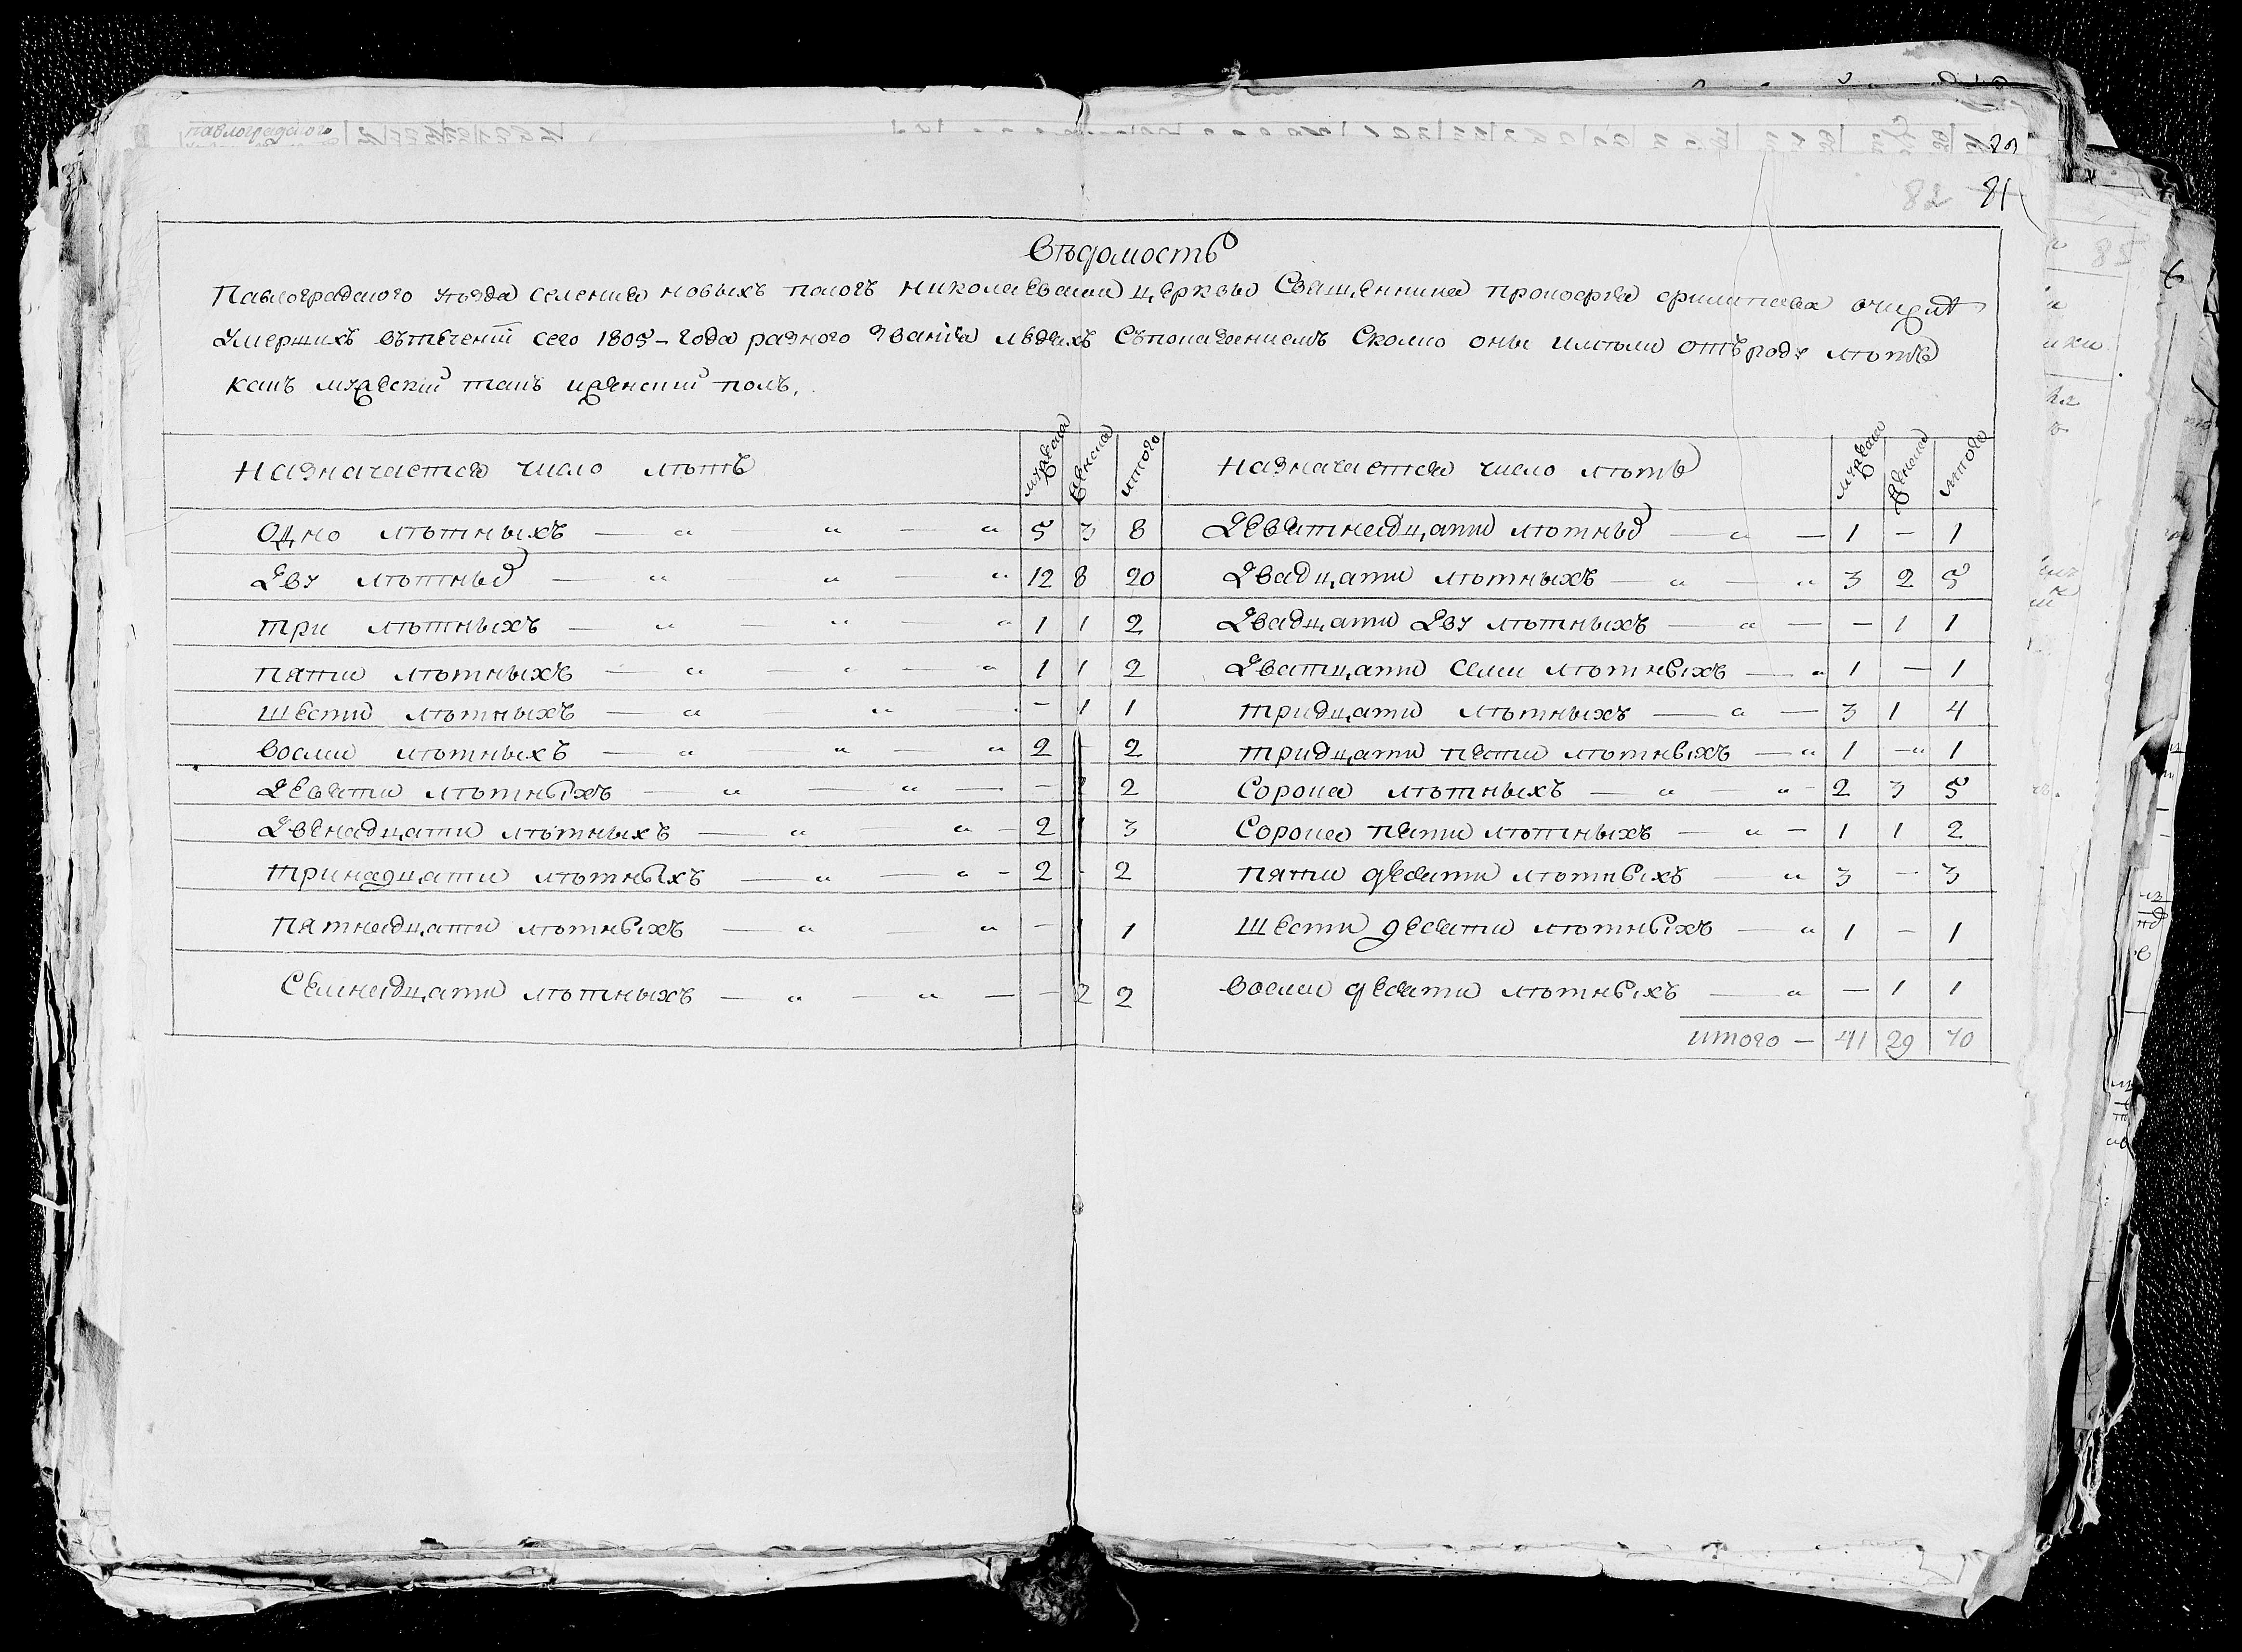 82 81
Вѣдомость
Павлоградского уѣзда селенія новыхъ николаевской церкви Священника прокофія филипова
умершихъ втѣченіи сего 1805-года разного званія людехъ Сьпоказаниемъ Сколко оны имѣли отъроду лѣтъ
какъ мужескій такъ иженскій полъ.
Назначается число лѣтъ мужеска женска итого Назначается число лѣтъ мужеска женска итого
Одно лѣтныхъ — „ — „ — „ 5 3 8 Девятнадцати лѣтны — „ — 1 — 1
Дву лѣтны — „ — „ — „ 12 8 20 Двадцати лѣтныхъ — „ — „ 3 2 5
три лѣтныхъ — „ — „ — „ 1 1 2 Двадцати Дву лѣтныхъ — „ — — 1 1
пяти лѣтныхъ — „ — „ — „ 1 1 2 Дватцати семи лѣтныхъ — „ 1 — 1
шести лѣтныхъ — „ — „ — — 1 1 тридцати лѣтныхъ — „ — 3 1 4
восми лѣтныхъ — „ — „ — „ 2 - 2 тридцати пяти лѣтныхъ — „ 1 —„ 1
Девяти лѣтныхъ — „ — „ — — 2 Сорока лѣтныхъ — „ — „ - 2 3 5
Двенадцати лѣтныхъ — „ — „ - 2 1 3 Сорока пяти лѣтныхъ — „ — 1 1 2
тринадцати лѣтныхъ — „ — „ - 2 - 2 пяти десяти лѣтныхъ — „ 3 — 3
пятнадцати лѣтныхъ — „ — „ — 1 1 шести десяти лѣтныхъ — „ 1 — 1
Семнадцати лѣтныхъ — „ — „ — — 2 2 восми десяти лѣтныхъ — „ — 1 1
итого — 41 29 70